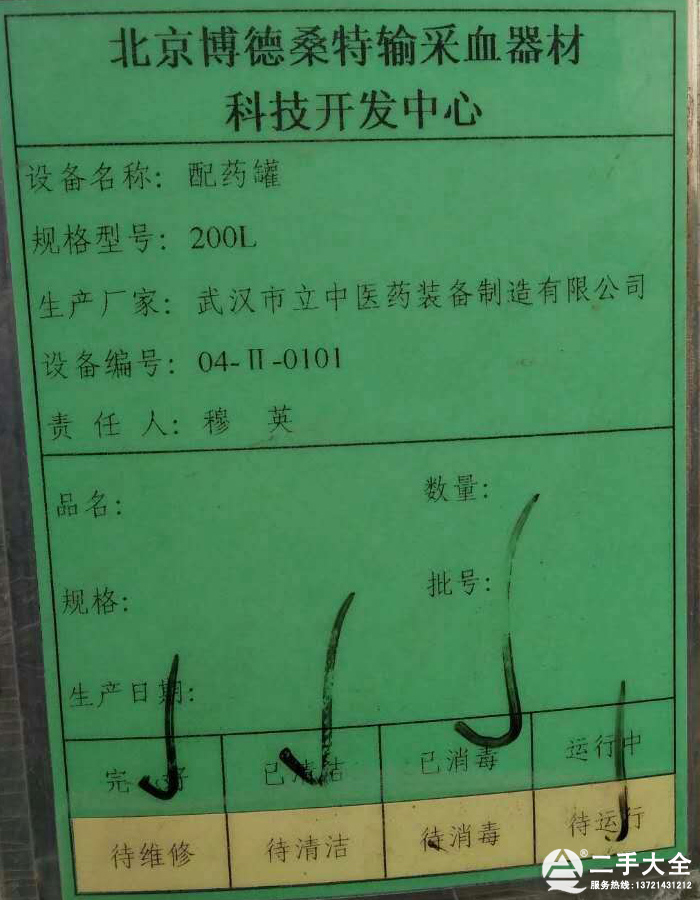 北京博德桑特输采血器材
科技开发中心
设备名称：配药罐
规格型号：200L
生产厂家：武汉市立中医药装备制造有限公司
设备编号：04-Ⅱ-0101
责任人：穆 英
品名： 数量：
规格： 批号：
生产日期：
完好 已清洁 已消毒 运行中
待维修 待清洁 待消毒 待运行
二手大全
服务热线：13721431212